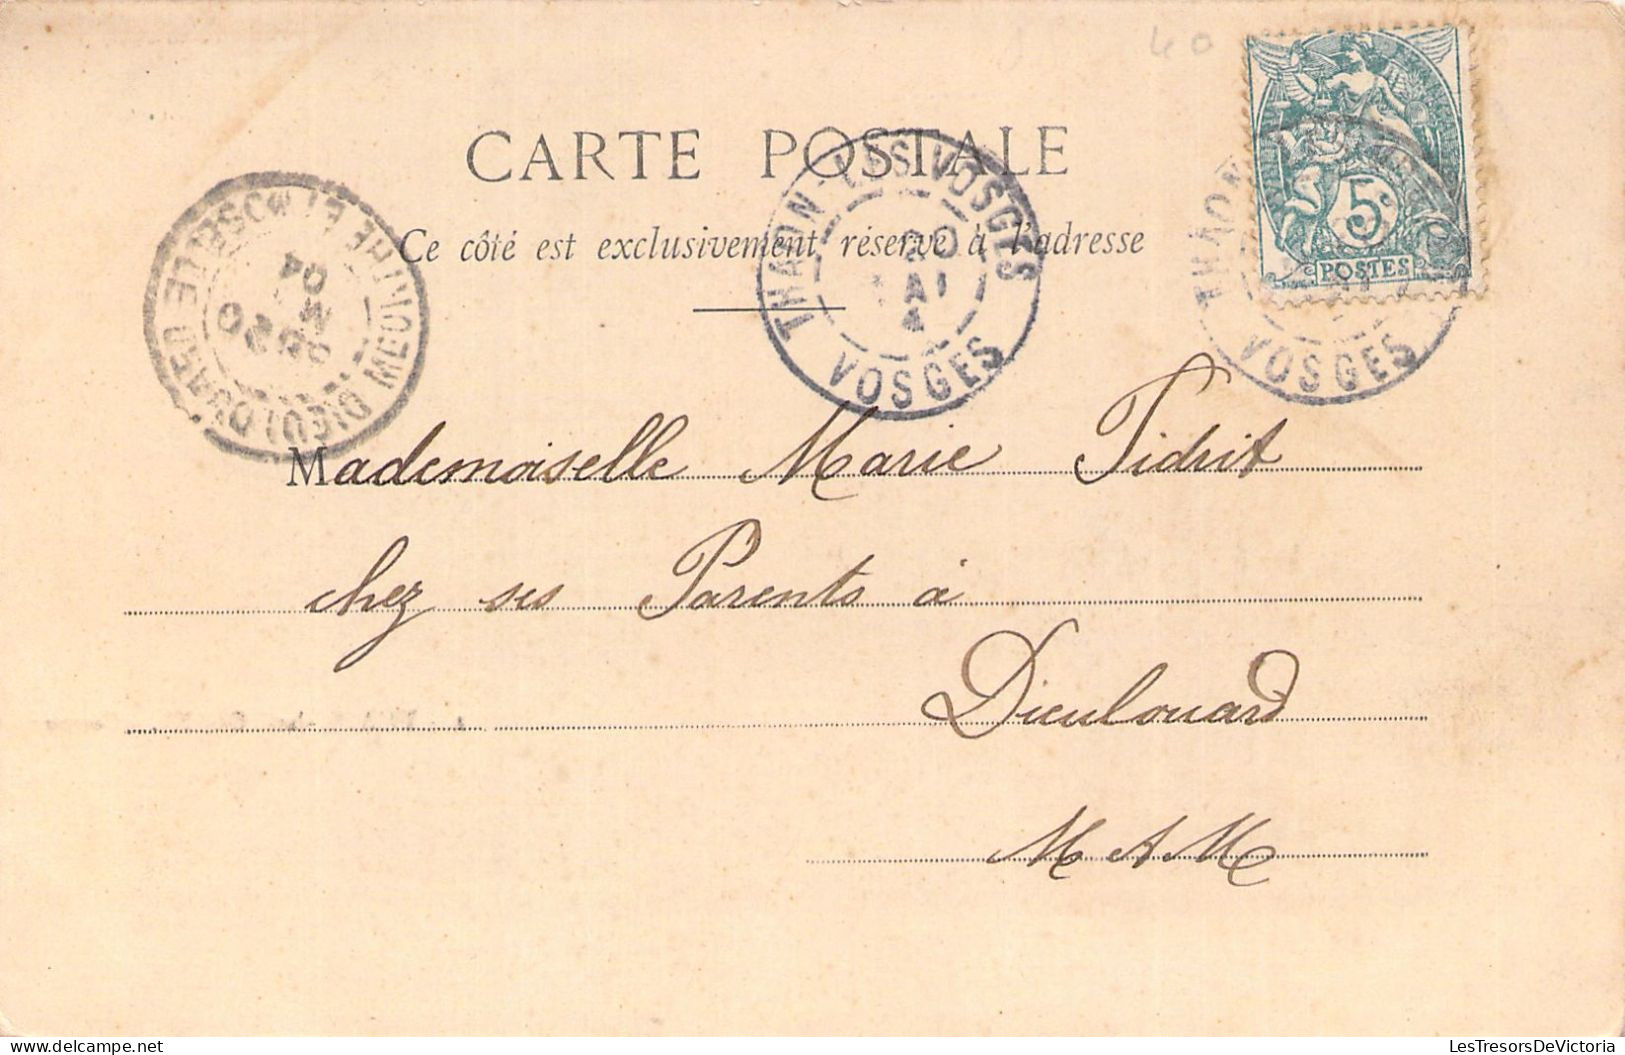 40
CARTE POSTALE
Ce côté est exclusivement réservé à l'adresse
5c
POSTES
THAON-LES-VOSGES
20
VOSGES
THAON
VOSGES
DIEULOUARD
MEURTHE ET MOSELLE
20
04
Mademoiselle Marie Tidrit
chez ses Parents à
Dieulouard
M A M
LesTresorsDeVictoria